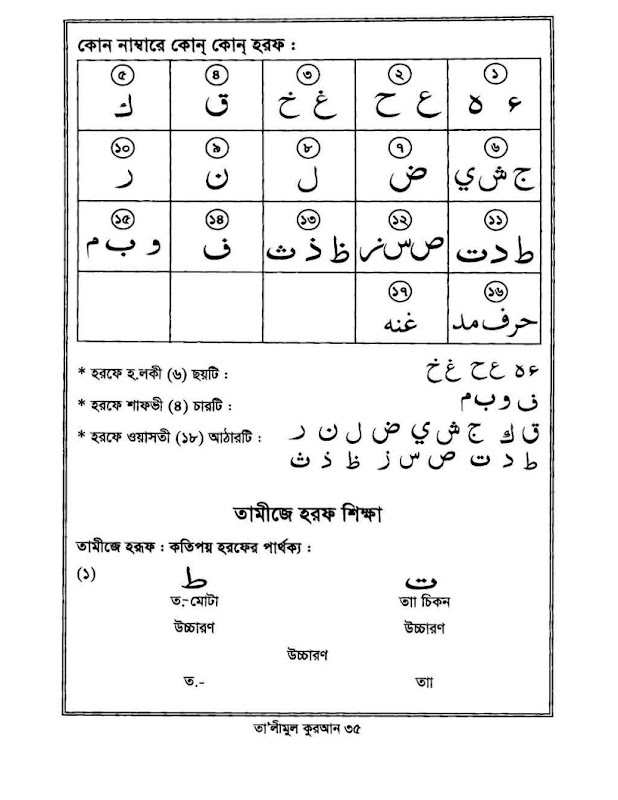 কোন নাম্বারে কোন্ কোন্ হরফ :
৫ ৪ ৩ ২ ১
ك ق غ خ ع ح ء ه
১০ ৯ ৮ ৭ ৬
ر ن ل ض ج ش ي
১৫ ১৪ ১৩ ১২ ১১
و ب م ف ظ ذ ث ص س ز ط د ت
১৭ ১৬
غنه حرف مد
* হরফে হ.লকী (৬) ছয়টি : ء ه ع ح غ خ
* হরফে শাফভী (৪) চারটি : ف و ب م
* হরফে ওয়াসতী (১৮) আঠারটি : ق ك ج ش ي ض ل ن ر
ط د ت ص س ز ظ ذ ث
তামীজে হরফ শিক্ষা
তামীজে হরূফ : কতিপয় হরফের পার্থক্য :
(১) ط ت
ত.-মোটা তাা চিকন
উচ্চারণ উচ্চারণ
উচ্চারণ
ত.- তাা
তা'লীমুল কুরআন ৩৫